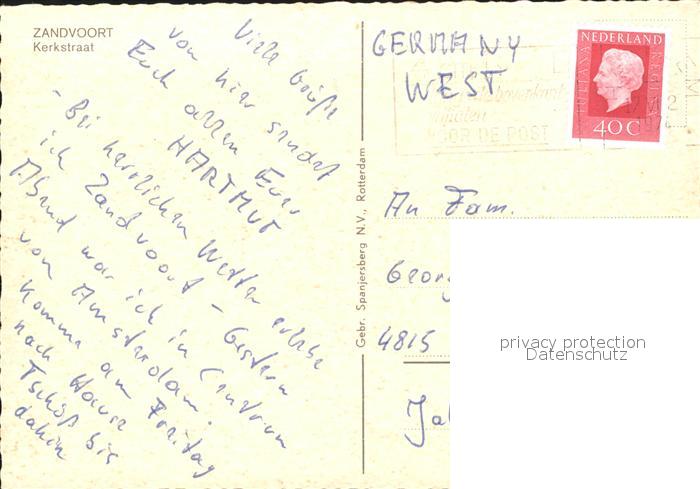 ZANDVOORT
Kerkstraat
Viele Grüße
von hier sendet
Euch allen Euer
HARTMUT
- Bei herrlichem Wetter erlebe
ich Zandvoort - Gestern
Abend war ich in Centrum
von Amsterdam.
Komme am Freitag
nach Hause
Tschöß bis
dahin
Gebr. Spanjersberg N.V., Rotterdam
GERMANY
WEST
NEDERLAND
JULIANA REGINA
40 C
VOOR DE POST
An Fam.
Georg
4815
privacy protection
Datenschutz